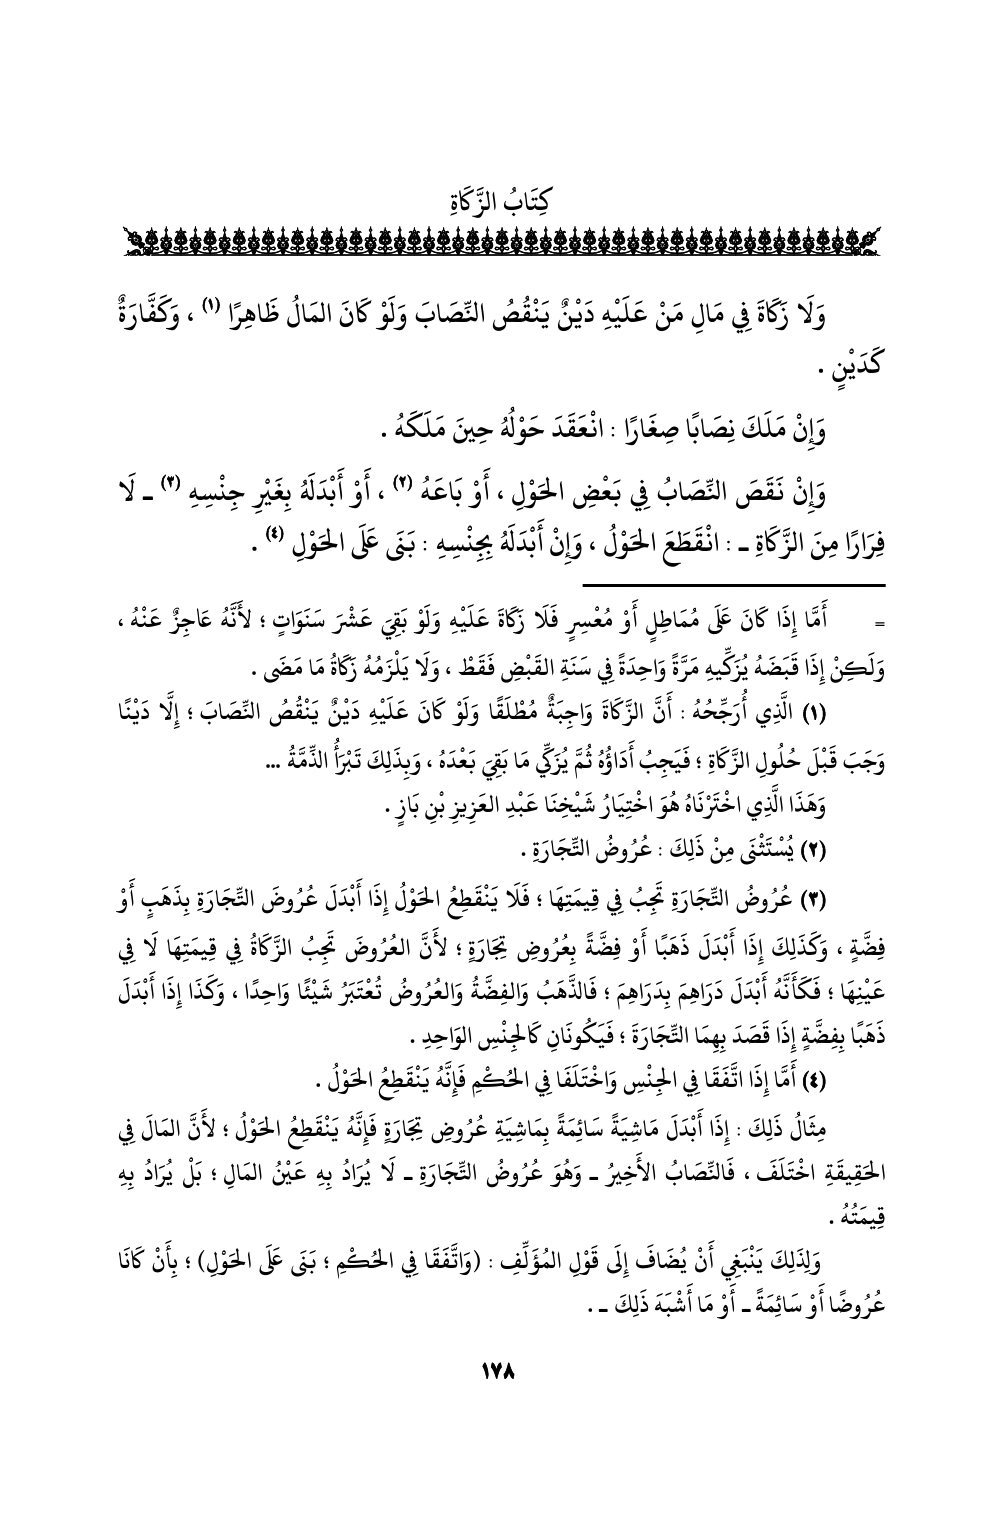 كِتَابُ الزَّكَاةِ
وَلَا زَكَاةَ فِي مَالِ مَنْ عَلَيْهِ دَيْنٌ يَنْقُصُ النِّصَابَ وَلَوْ كَانَ المَالُ ظَاهِرًا (١) ، وَكَفَّارَةٌ
كَدَيْنٍ .
وَإِنْ مَلَكَ نِصَابًا صِغَارًا : انْعَقَدَ حَوْلُهُ حِينَ مَلَكَهُ .
وَإِنْ نَقَصَ النِّصَابُ فِي بَعْضِ الحَوْلِ ، أَوْ بَاعَهُ (٢) ، أَوْ أَبْدَلَهُ بِغَيْرِ جِنْسِهِ (٣) ـ لَا
فِرَارًا مِنَ الزَّكَاةِ ـ : انْقَطَعَ الحَوْلُ ، وَإِنْ أَبْدَلَهُ بِجِنْسِهِ : بَنَى عَلَى الحَوْلِ (٤) .
= أَمَّا إِذَا كَانَ عَلَى مُمَاطِلٍ أَوْ مُعْسِرٍ فَلَا زَكَاةَ عَلَيْهِ وَلَوْ بَقِيَ عَشْرَ سَنَوَاتٍ ؛ لأَنَّهُ عَاجِزٌ عَنْهُ ،
وَلَكِنْ إِذَا قَبَضَهُ يُزَكِّيهِ مَرَّةً وَاحِدَةً فِي سَنَةِ القَبْضِ فَقَطْ ، وَلَا يَلْزَمُهُ زَكَاةُ مَا مَضَى .
(١) الَّذِي أُرَجِّحُهُ : أَنَّ الزَّكَاةَ وَاجِبَةٌ مُطْلَقًا وَلَوْ كَانَ عَلَيْهِ دَيْنٌ يَنْقُصُ النِّصَابَ ؛ إِلَّا دَيْنًا
وَجَبَ قَبْلَ حُلُولِ الزَّكَاةِ ؛ فَيَجِبُ أَدَاؤُهُ ثُمَّ يُزَكِّي مَا بَقِيَ بَعْدَهُ ، وَبِذَلِكَ تَبْرَأُ الذِّمَّةُ ...
وَهَذَا الَّذِي اخْتَرْنَاهُ هُوَ اخْتِيَارُ شَيْخِنَا عَبْدِ العَزِيزِ بْنِ بَازٍ .
(٢) يُسْتَثْنَى مِنْ ذَلِكَ : عُرُوضُ التِّجَارَةِ .
(٣) عُرُوضُ التِّجَارَةِ تَجِبُ فِي قِيمَتِهَا ؛ فَلَا يَنْقَطِعُ الحَوْلُ إِذَا أَبْدَلَ عُرُوضَ التِّجَارَةِ بِذَهَبٍ أَوْ
فِضَّةٍ ، وَكَذَلِكَ إِذَا أَبْدَلَ ذَهَبًا أَوْ فِضَّةً بِعُرُوضِ تِجَارَةٍ ؛ لأَنَّ العُرُوضَ تَجِبُ الزَّكَاةُ فِي قِيمَتِهَا لَا فِي
عَيْنِهَا ؛ فَكَأَنَّهُ أَبْدَلَ دَرَاهِمَ بِدَرَاهِمَ ؛ فَالذَّهَبُ وَالفِضَّةُ وَالعُرُوضُ تُعْتَبَرُ شَيْئًا وَاحِدًا ، وَكَذَا إِذَا أَبْدَلَ
ذَهَبًا بِفِضَّةٍ إِذَا قَصَدَ بِهِمَا التِّجَارَةَ ؛ فَيَكُونَانِ كَالجِنْسِ الوَاحِدِ .
(٤) أَمَّا إِذَا اتَّفَقَا فِي الجِنْسِ وَاخْتَلَفَا فِي الحُكْمِ فَإِنَّهُ يَنْقَطِعُ الحَوْلُ .
مِثَالُ ذَلِكَ : إِذَا أَبْدَلَ مَاشِيَةً سَائِمَةً بِمَاشِيَةِ عُرُوضِ تِجَارَةٍ فَإِنَّهُ يَنْقَطِعُ الحَوْلُ ؛ لأَنَّ المَالَ فِي
الحَقِيقَةِ اخْتَلَفَ ، فَالنِّصَابُ الأَخِيرُ ـ وَهُوَ عُرُوضُ التِّجَارَةِ ـ لَا يُرَادُ بِهِ عَيْنُ المَالِ ؛ بَلْ يُرَادُ بِهِ
قِيمَتُهُ .
وَلِذَلِكَ يَنْبَغِي أَنْ يُضَافَ إِلَى قَوْلِ المُؤَلِّفِ : (وَاتَّفَقَا فِي الحُكْمِ ؛ بَنَى عَلَى الحَوْلِ) ؛ بِأَنْ كَانَا
عُرُوضًا أَوْ سَائِمَةً ـ أَوْ مَا أَشْبَهَ ذَلِكَ ـ .
١٧٨